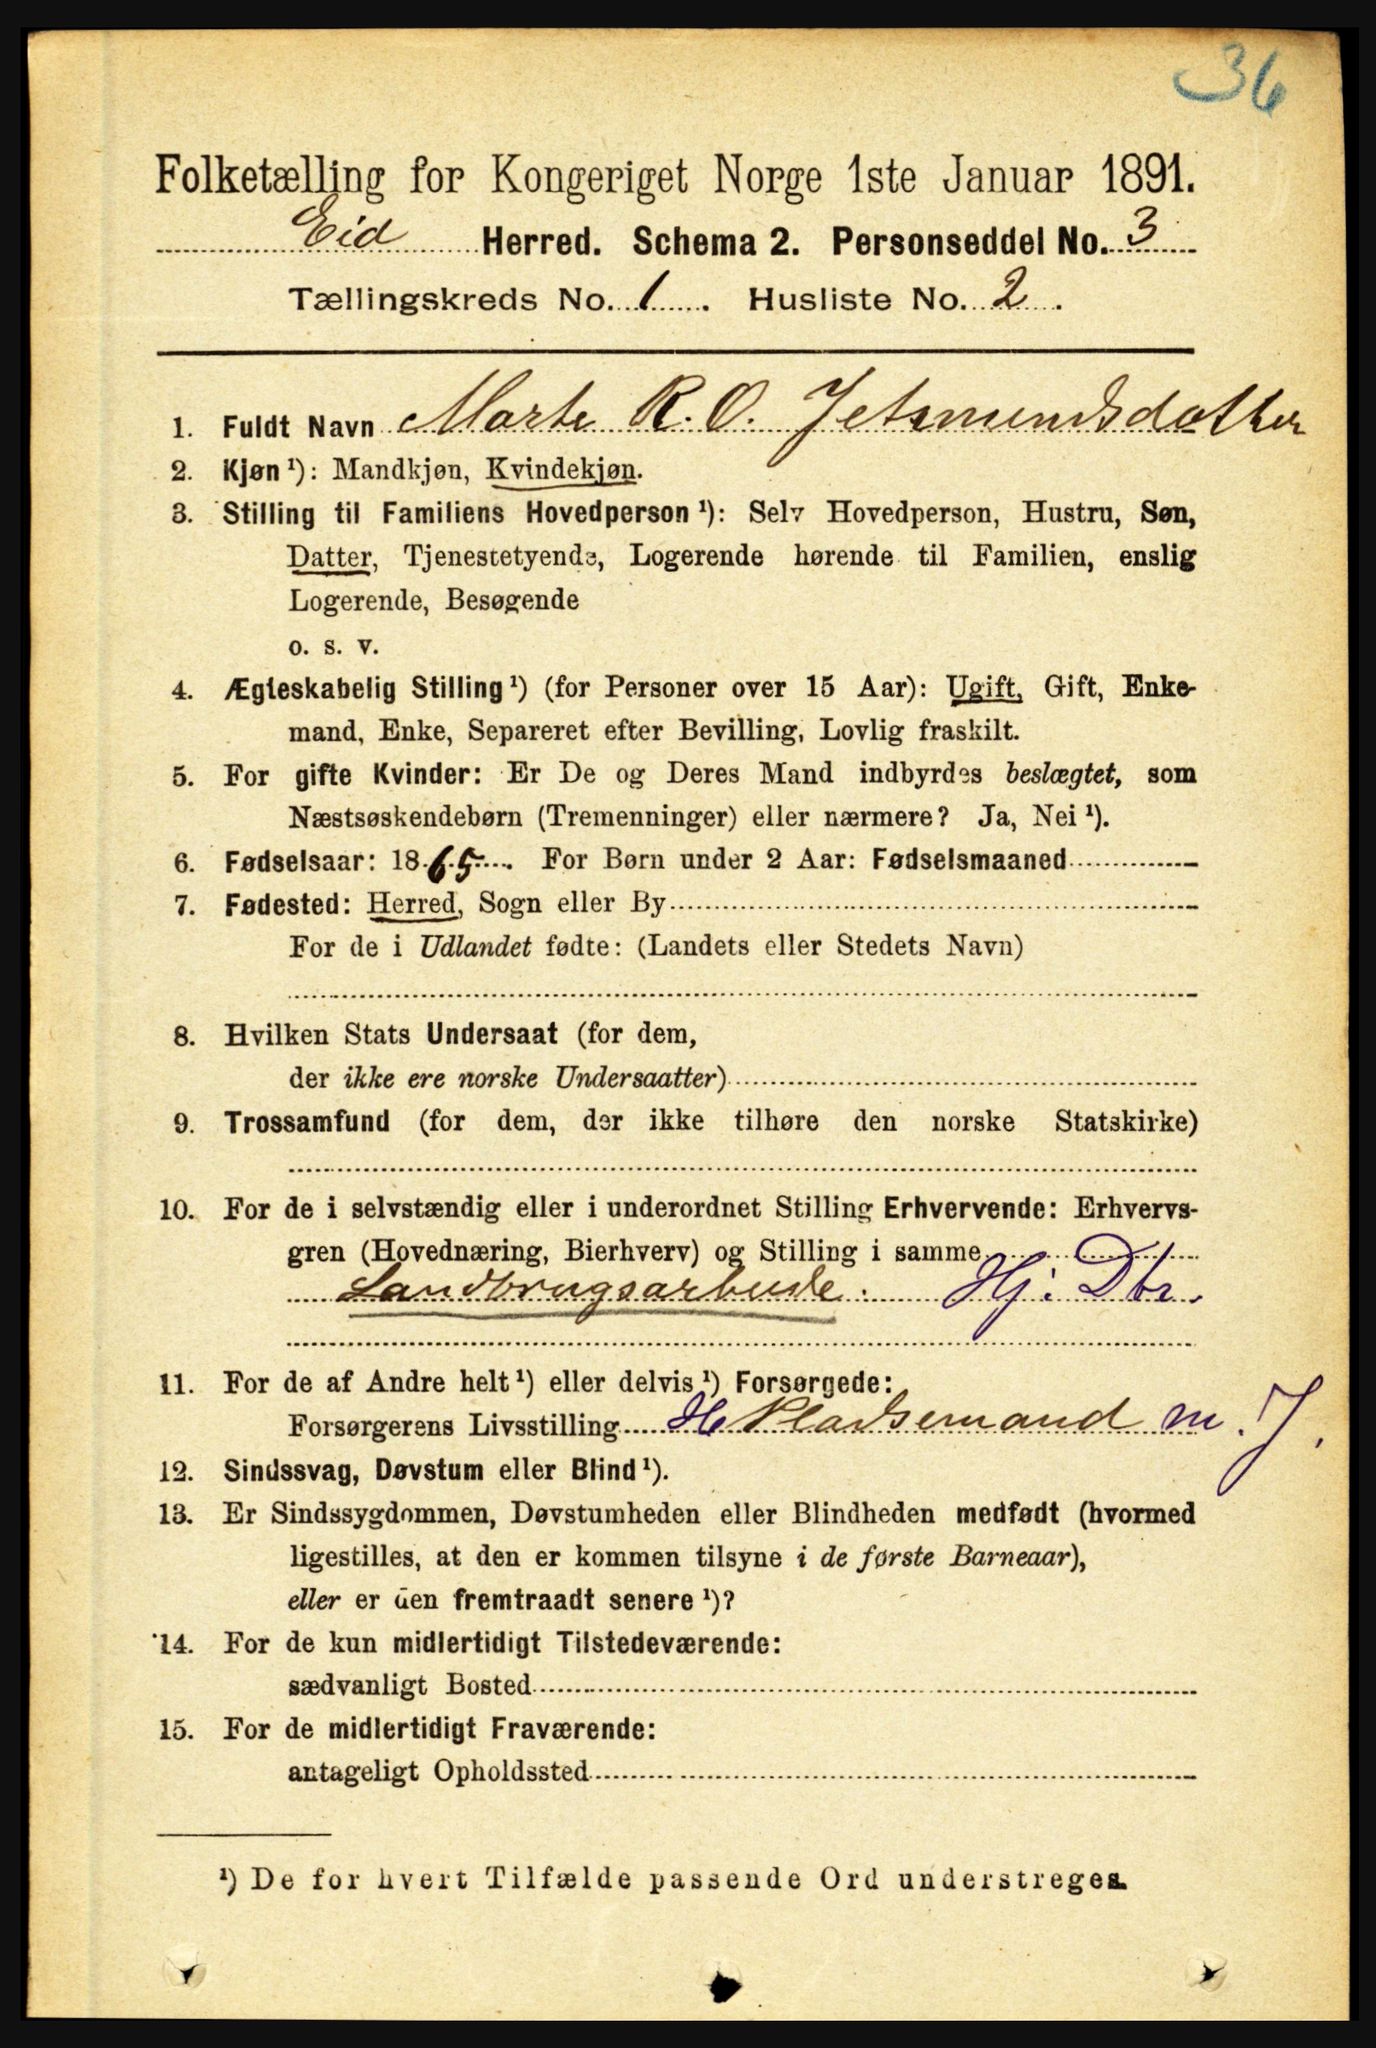 36
Folketælling for Kongeriget Norge 1ste Januar 1891.
Eid Herred. Schema 2. Personseddel No. 3
Tællingskreds No. 1. Husliste No. 2.
1. Fuldt Navn Marte R. O. Jetmundsdatter
2. Kjøn ¹): Mandkjøn, Kvindekjøn.
3. Stilling til Familiens Hovedperson ¹): Selv Hovedperson, Hustru, Søn,
Datter, Tjenestetyende, Logerende hørende til Familien, enslig
Logerende, Besøgende
o. s. v.
4. Ægteskabelig Stilling ¹) (for Personer over 15 Aar): Ugift, Gift, Enke-
mand, Enke, Separeret efter Bevilling, Lovlig fraskilt.
5. For gifte Kvinder: Er De og Deres Mand indbyrdes beslægtet, som
Næstsøskendebørn (Tremenninger) eller nærmere? Ja, Nei ¹).
6. Fødselsaar: 1865. For Børn under 2 Aar: Fødselsmaaned
7. Fødested: Herred, Sogn eller By
For de i Udlandet fødte: (Landets eller Stedets Navn)
8. Hvilken Stats Undersaat (for dem,
der ikke ere norske Undersaatter)
9. Trossamfund (for dem, der ikke tilhøre den norske Statskirke)
10. For de i selvstændig eller i underordnet Stilling Erhvervende: Erhvervs-
gren (Hovednæring, Bierhverv) og Stilling i samme
Landbrugsarbeide. Hj. Dtr.
11. For de af Andre helt ¹) eller delvis ¹) Forsørgede:
Forsørgerens Livsstilling H Pladsemand m. J.
12. Sindssvag, Døvstum eller Blind ¹).
13. Er Sindssygdommen, Døvstumheden eller Blindheden medfødt (hvormed
ligestilles, at den er kommen tilsyne i de første Barneaar),
eller er den fremtraadt senere ¹)?
14. For de kun midlertidigt Tilstedeværende:
sædvanligt Bosted
15. For de midlertidigt Fraværende:
antageligt Opholdssted
¹) De for hvert Tilfælde passende Ord understreges.